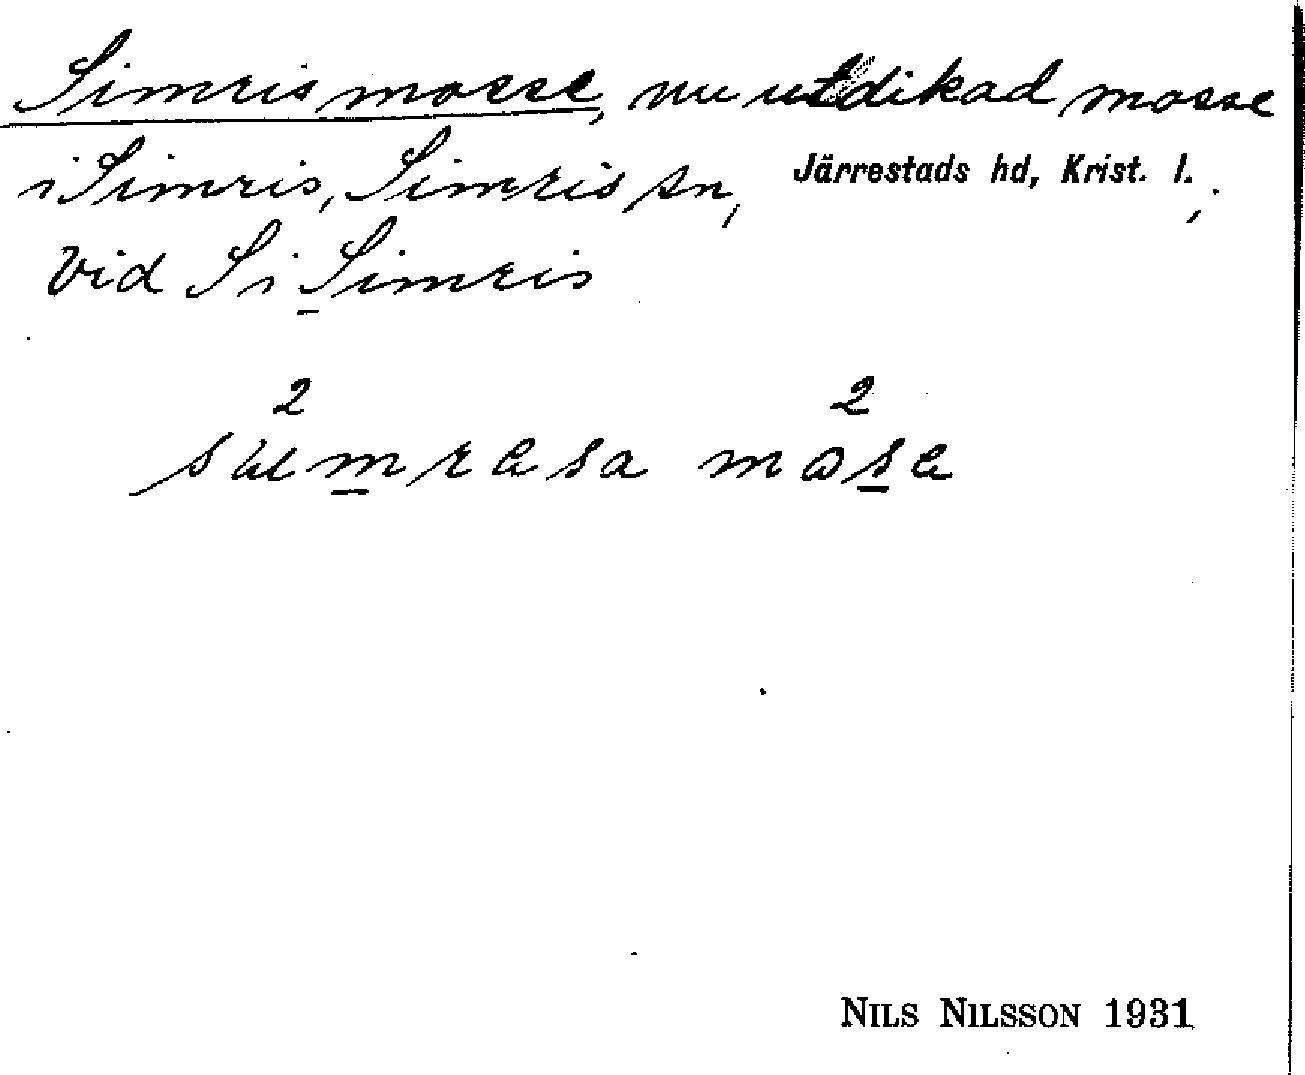 Simris mosse, nu utdikad mosse
i Simris, Simris sn, Järrestads hd, Krist. l.;
vid S i Simris
2 2
sumrasa mosa
NILS NILSSON 1931